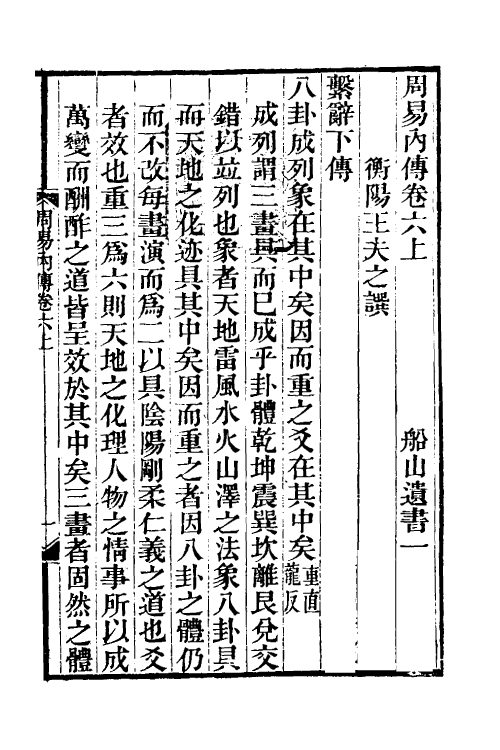 周易內傳卷六上 船山遺書一
衡陽王夫之譔
繫辭下傳
八卦成列象在其中矣因而重之爻在其中矣重直龍反
成列謂三畫具而已成乎卦體乾坤震巽坎離艮兌交
錯以竝列也象者天地雷風水火山澤之法象八卦具
而天地之化迹具其中矣因而重之者因八卦之體仍
而不改每畫演而爲二以具陰陽剛柔仁義之道也爻
者效也重三爲六則天地之化理人物之情事所以成
萬變而酬酢之道皆呈效於其中矣三畫者固然之體
周易內傳卷六上 一